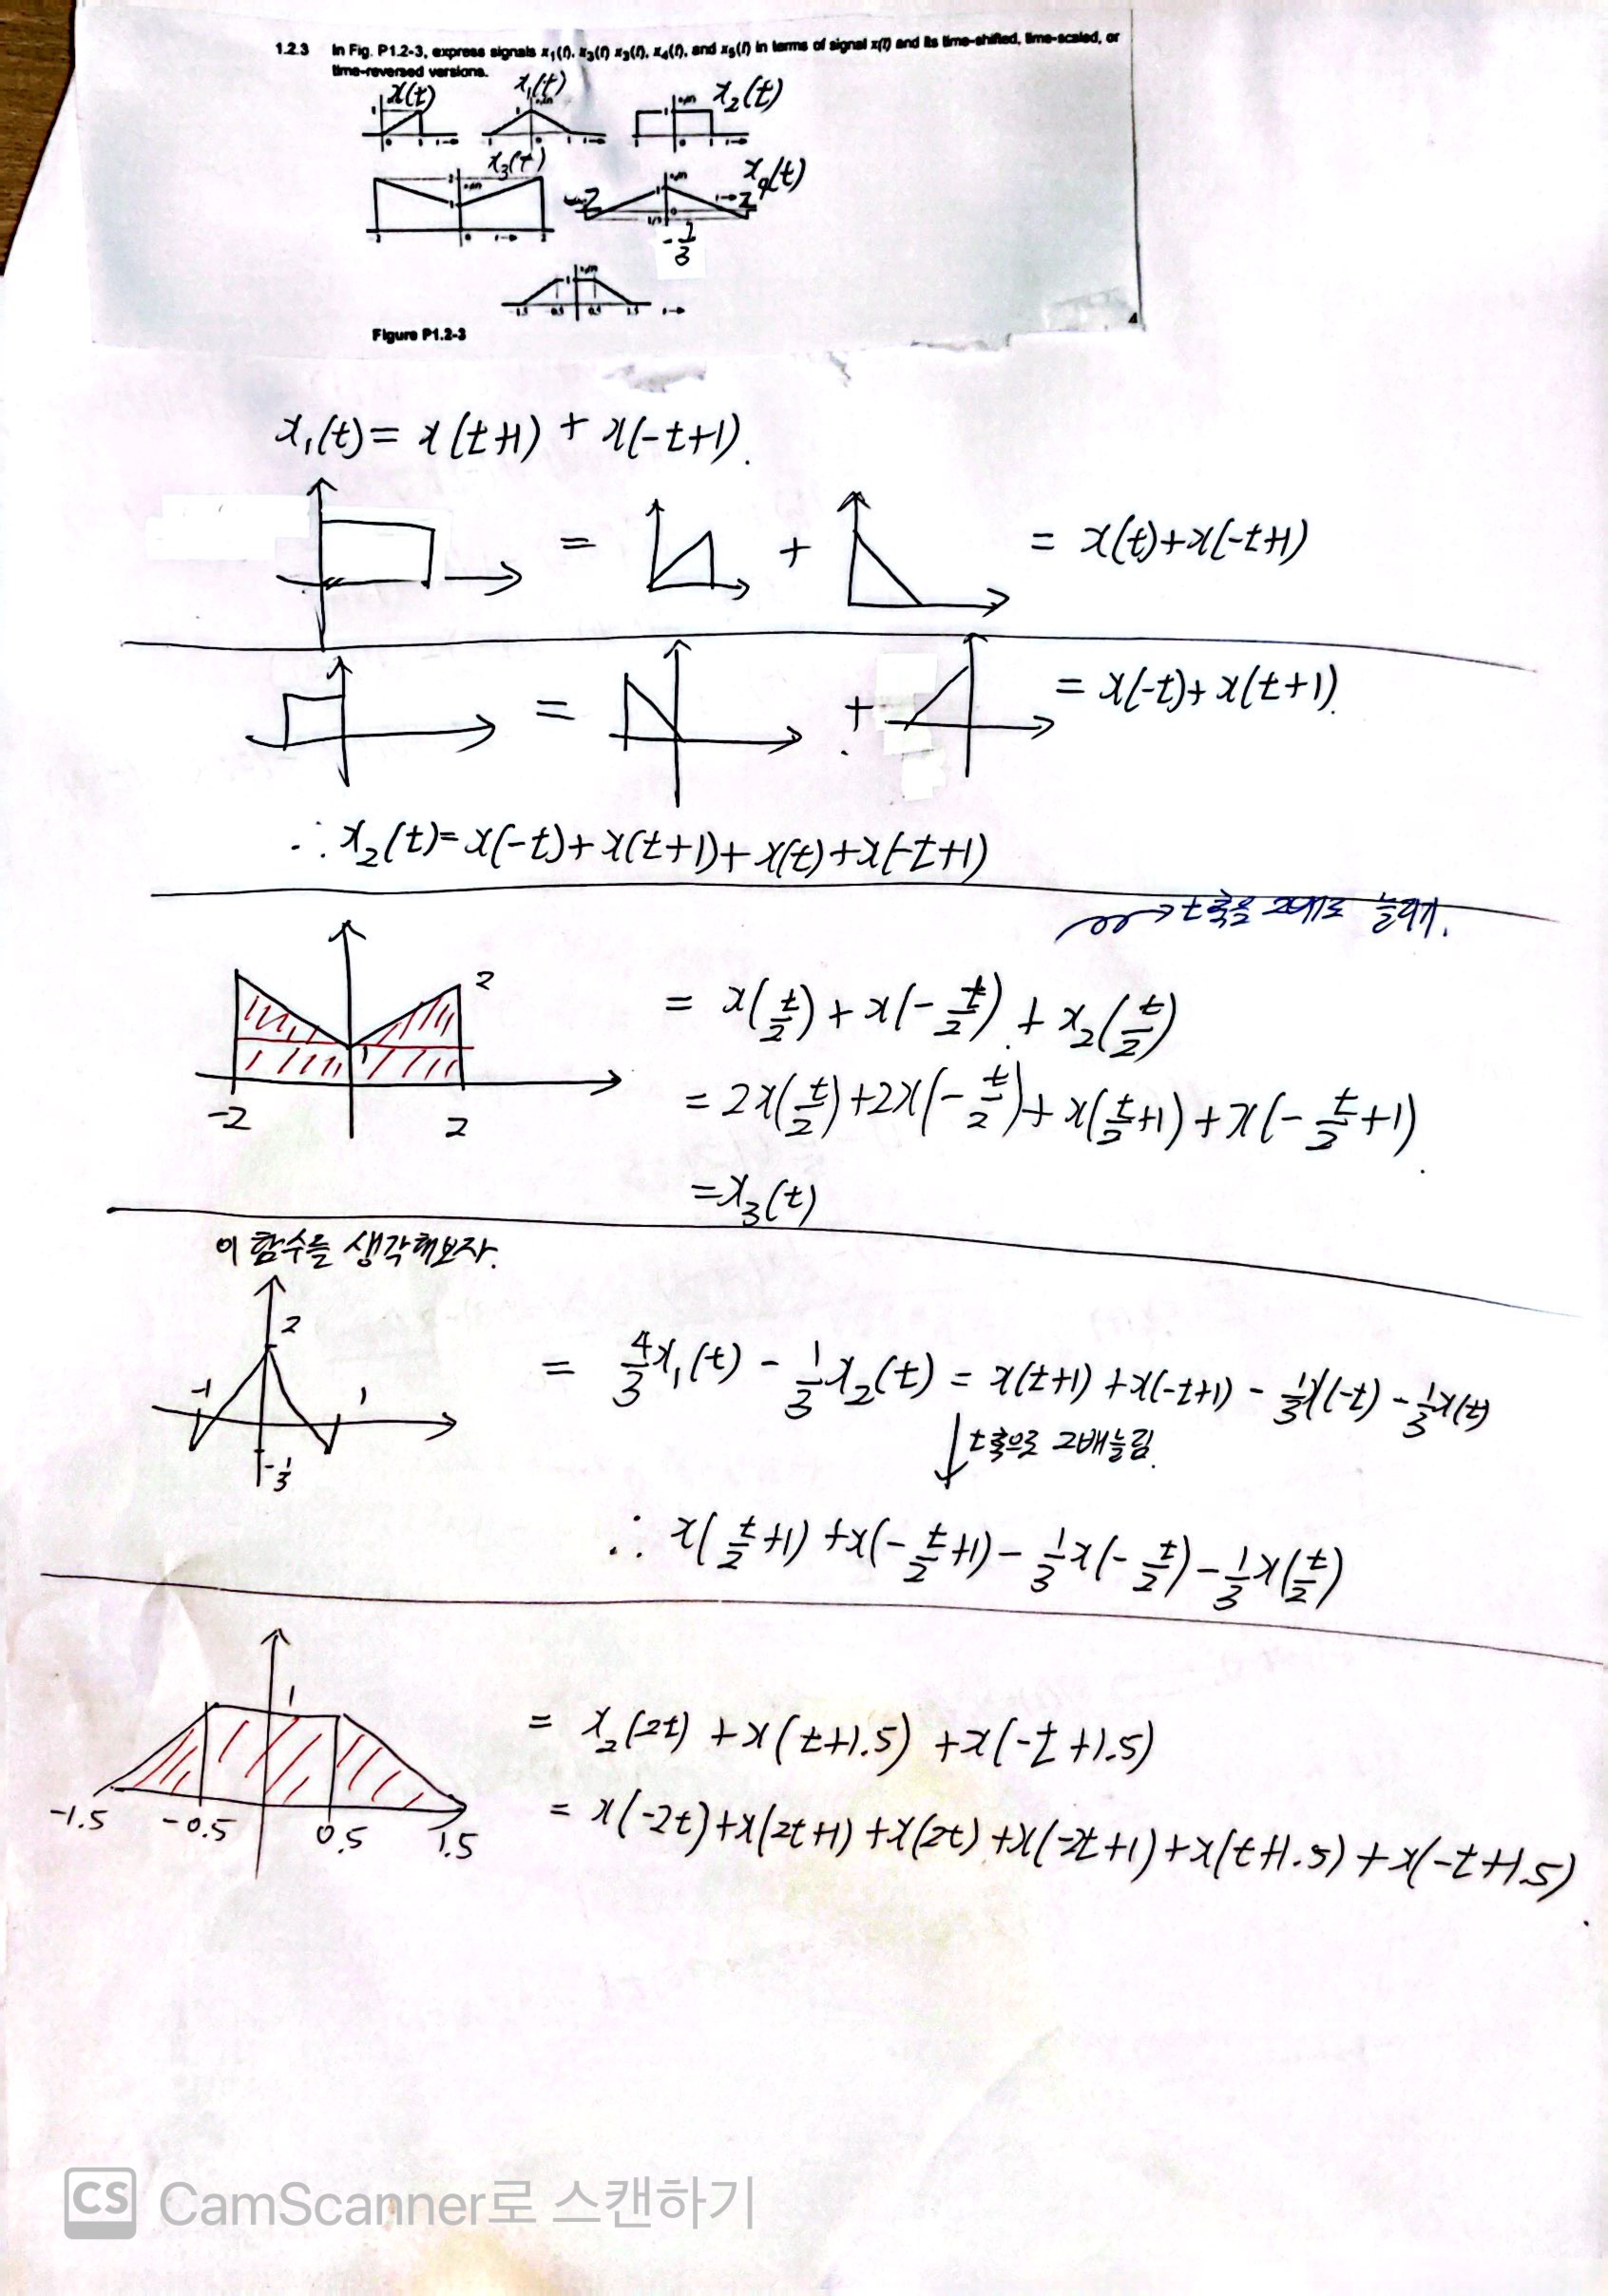 1.2.3 In Fig. P1.2-3, express signals x₁(t), x₂(t) x₃(t), x₄(t), and x₅(t) in terms of signal x(t) and its time-shifted, time-scaled, or
time-reversed versions.
x(t) x₁(t) x₂(t)
x₃(t) x₄(t)
-2 2
-1/3
-1.5 0.5 0.5 1.5
Figure P1.2-3
x₁(t) = x(t+1) + x(-t+1).
= + = x(t)+x(-t+1)
= + = x(-t)+x(t+1).
∴ x₂(t)=x(-t)+x(t+1)+x(t)+x(-t+1)
→ t축을 2배로 늘리기.
2
1
-2 2
= x(t/2) + x(-t/2) + x₂(t/2)
= 2x(t/2)+2x(-t/2)+x(t/2+1)+x(-t/2+1).
=x₃(t)
이 함수를 생각해보자.
2
-1 1
-1/3
= 4/3x₁(t) - 1/3x₂(t) = x(t+1) +x(-t+1) - 1/3x(-t) - 1/3x(t)
↓ t축으로 2배늘림.
∴ x(t/2+1) +x(-t/2+1)- 1/3x(-t/2)-1/3x(t/2)
1
-1.5 -0.5 0.5 1.5
= x₂(2t) +x(t+1.5) +x(-t+1.5)
= x(-2t)+x(2t+1)+x(2t)+x(-2t+1)+x(t+1.5)+x(-t+1.5).
CS CamScanner로 스캔하기